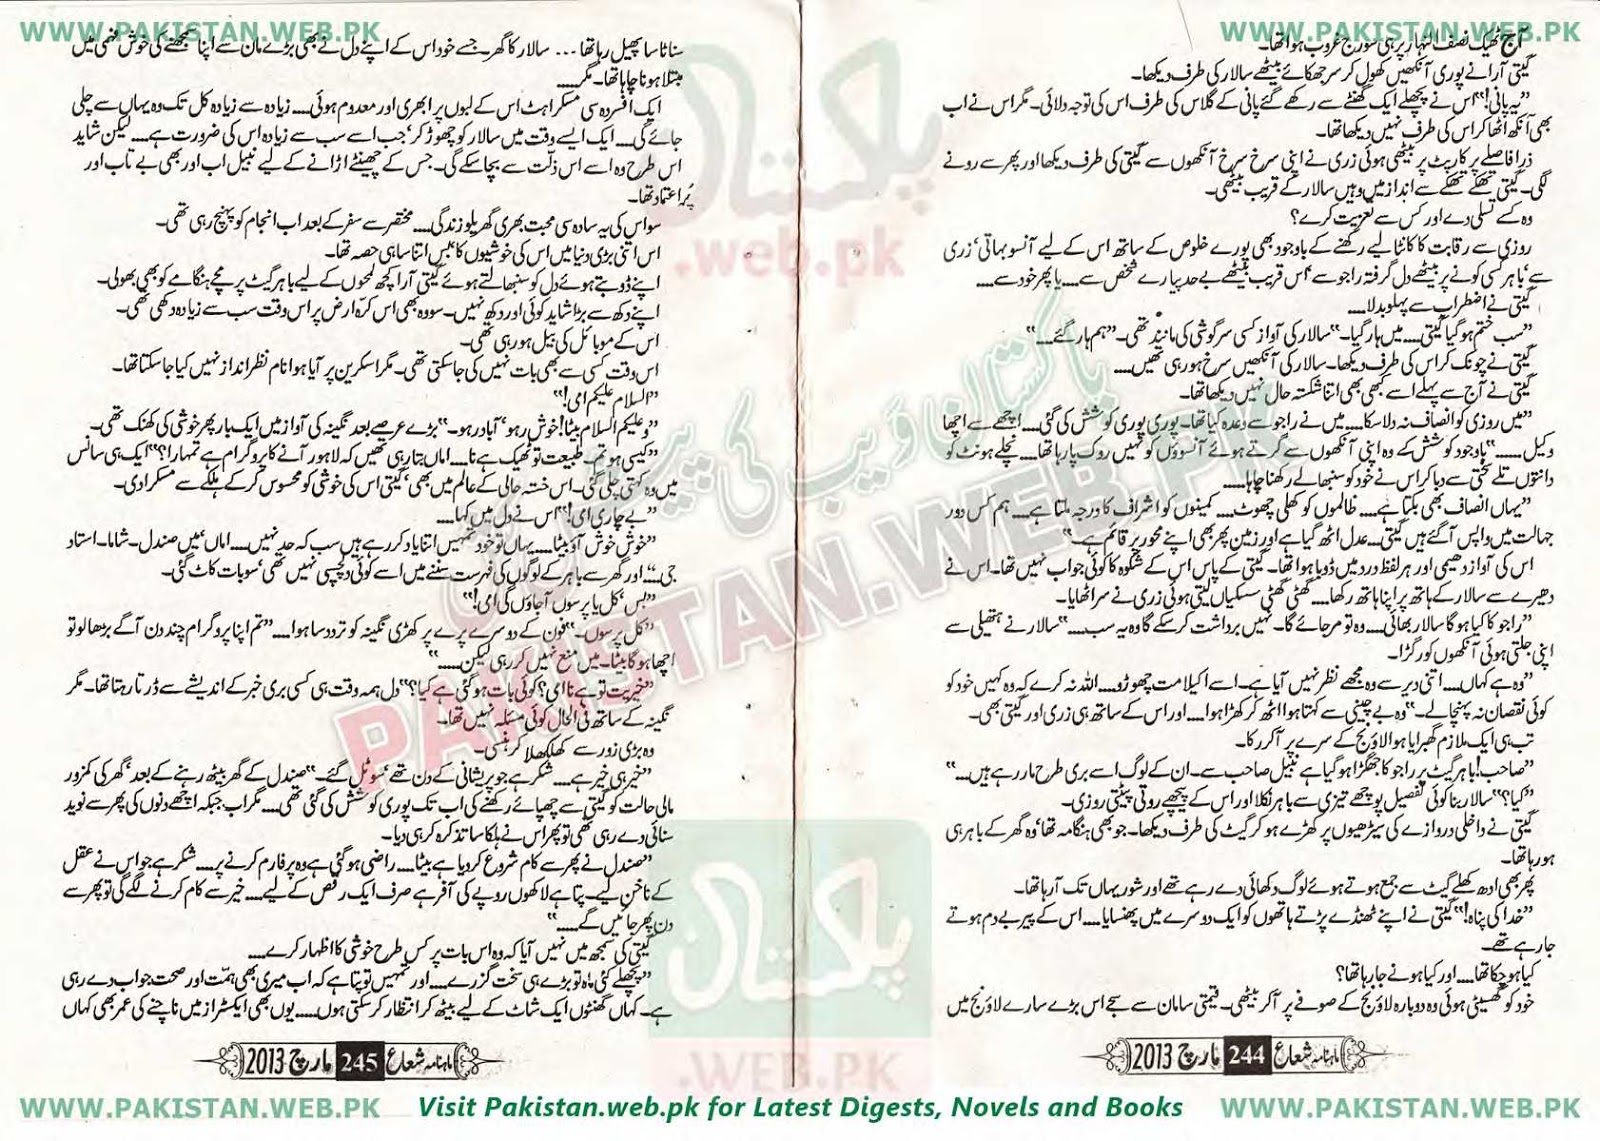 WWW.PAKISTAN.WEB.PK
WWW.PAKISTAN.WEB.PK
آج ٹھیک نصف النہار پر ہی سورج غروب ہوا تھا۔
گیتی آرا نے پوری آنکھیں کھول کر سر جھکائے بیٹھے سالار کی طرف دیکھا۔
”یہ پانی!“ اس نے پچھلے ایک گھنٹے سے رکھے گئے پانی کے گلاس کی طرف اس کی توجہ دلائی۔ مگر اس نے اب
بھی آنکھ اٹھا کر اس کی طرف نہیں دیکھا تھا۔
ذرا فاصلے پر کارپٹ پر بیٹھی ہوئی زری نے اپنی سرخ سرخ آنکھوں سے گیتی کی طرف دیکھا اور پھر سے رونے
لگی۔ گیتی تھکے تھکے سے انداز میں وہیں سالار کے قریب بیٹھی۔
وہ کسے تسلی دے اور کس سے تعزیت کرے؟
روزی سے رقابت کا کانٹا لیے رکھنے کے باوجود بھی پورے خلوص کے ساتھ اس کے لیے آنسو بہاتی‘ زری
سے‘ باہر کسی کونے پر بیٹھے دل گرفتہ راجو سے‘ اس قریب بیٹھے بے حد پیارے شخص سے.... یا پھر خود سے....
گیتی نے اضطراب سے پہلو بدلا....
”سب ختم ہو گیا گیتی.... میں ہار گیا۔“ سالار کی آواز کسی سرگوشی کی مانند تھی۔ ”ہم ہار گئے....“
گیتی نے چونک کر اس کی طرف دیکھا۔ سالار کی آنکھیں سرخ ہو رہی تھیں....
گیتی نے آج سے پہلے اسے کبھی بھی اتنا شکستہ حال نہیں دیکھا تھا۔
”میں روزی کو انصاف نہ دلا سکا.... میں نے راجو سے وعدہ کیا تھا۔ پوری پوری کوشش کی گئی.... اچھے سے اچھا
وکیل....“ باوجود کوشش کے وہ اپنی آنکھوں سے گرتے ہوئے آنسوؤں کو نہیں روک پا رہا تھا.... نچلے ہونٹ کو
دانتوں تلے سختی سے دبا کر اس نے خود کو سنبھالے رکھنا چاہا....
”یہاں انصاف بھی بکتا ہے.... ظالموں کو کھلی چھوٹ.... کمینوں کو اشراف کا درجہ ملتا ہے.... ہم کس دور
جہالت میں واپس آ گئے ہیں گیتی.... عدل اٹھ گیا ہے اور زمین پھر بھی اپنے محور پر قائم ہے۔“
اس کی آواز دھیمی اور ہر لفظ درد میں ڈوبا ہوا تھا۔ گیتی کے پاس اس کے شکوہ کا کوئی جواب نہیں تھا۔ اس نے
دھیرے سے سالار کے ہاتھ پر اپنا ہاتھ رکھا.... گھٹی گھٹی سسکیاں لیتی ہوئی زری نے سر اٹھایا۔
”راجو کا کیا ہو گا سالار بھائی.... وہ تو مر جائے گا۔ نہیں برداشت کر سکے گا وہ یہ سب....“ سالار نے ہتھیلی سے
اپنی جلتی ہوئی آنکھوں کو رگڑا۔
”وہ ہے کہاں.... اتنی دیر سے وہ مجھے نظر نہیں آیا ہے۔ اسے اکیلا مت چھوڑو.... اللہ نہ کرے کہ وہ کہیں خود کو
کوئی نقصان نہ پہنچا لے۔“ وہ بے چینی سے کہتا ہوا اٹھ کر کھڑا ہوا.... اور اس کے ساتھ ہی زری اور گیتی بھی۔
تب ہی ایک ملازم گھبرایا ہوا لاؤنج کے سرے پر آ کر رکا۔
”صاحب! باہر گیٹ پر راجو کا جھگڑا ہو گیا ہے نبیل صاحب سے۔ ان کے لوگ اسے بری طرح مار رہے ہیں....“
”کیا؟“ سالار بنا کوئی تفصیل پوچھے تیزی سے باہر نکلا اور اس کے پیچھے روتی پیٹتی روزی۔
گیتی نے داخلی دروازے کی سیڑھیوں پر کھڑے ہو کر گیٹ کی طرف دیکھا۔ جو بھی ہنگامہ تھا‘ وہ گھر کے باہر ہی
ہو رہا تھا۔
پھر بھی ادھ کھلے گیٹ سے جمع ہوتے ہوئے لوگ دکھائی دے رہے تھے اور شور یہاں تک آ رہا تھا۔
”خدا کی پناہ!“ گیتی نے اپنے ٹھنڈے پڑتے ہاتھوں کو ایک دوسرے میں پھنسایا.... اس کے پیر بے دم ہوتے
جا رہے تھے۔
کیا ہو چکا تھا.... اور کیا ہونے جا رہا تھا؟
خود کو گھسیٹتی ہوئی وہ دوبارہ لاؤنج کے صوفے پر آ کر بیٹھی۔ قیمتی سامان سے سجے اس بڑے سارے لاؤنج میں
ماہنامہ شعاع 244 مارچ 2013
سناٹا سا پھیل رہا تھا... سالار کا گھر۔ جسے خود اس کے اپنے دل نے بھی بڑے مان سے اپنا سمجھنے کی خوش فہمی میں
مبتلا ہونا چاہا تھا۔ مگر....
ایک افسردہ سی مسکراہٹ اس کے لبوں پر ابھری اور معدوم ہوئی.... زیادہ سے زیادہ کل تک وہ یہاں سے چلی
جائے گی.... ایک ایسے وقت میں سالار کو چھوڑ کر‘ جب اسے سب سے زیادہ اس کی ضرورت ہے.... لیکن شاید
اس طرح وہ اسے اس ذلت سے بچا سکے گی۔ جس کے چھینٹے اڑانے کے لیے نبیل اب اور بھی بے تاب اور
پُراعتماد تھا۔
سو اس کی یہ سادہ سی محبت بھری گھریلو زندگی.... مختصر سے سفر کے بعد اب انجام کو پہنچ رہی تھی۔
اس اتنی بڑی دنیا میں اس کی خوشیوں کا بس اتنا سا ہی حصہ تھا۔
اپنے ڈوبتے ہوئے دل کو سنبھالتے ہوئے گیتی آرا کچھ لمحوں کے لیے باہر گیٹ پر مچے ہنگامے کو بھی بھولی۔
اپنے دکھ سے بڑا شاید کوئی اور دکھ نہیں۔ سو وہ بھی اس کرّہ ارض پر اس وقت سب سے زیادہ دکھی تھی۔
اس کے موبائل کی بیل ہو رہی تھی۔
اس وقت کسی سے بھی بات نہیں کی جا سکتی تھی۔ مگر اسکرین پر آیا ہوا نام نظر انداز نہیں کیا جا سکتا تھا۔
”السلام علیکم امی!“
”وعلیکم السلام بیٹا! خوش رہو‘ آباد رہو۔“ بڑے عرصے بعد نگینہ کی آواز میں ایک بار پھر خوشی کی کھنک تھی۔
”کیسی ہو تم‘ طبیعت تو ٹھیک ہے نا.... اماں بتا رہی تھیں کہ لاہور آنے کا پروگرام ہے تمہارا؟“ ایک ہی سانس
میں وہ کہتی چلی گئی۔ اس خستہ حالی کے عالم میں بھی‘ گیتی اس کی خوشی کو محسوس کر کے ہلکے سے مسکرا دی۔
”بے چاری امی!“ اس نے دل میں کہا....
”خوش خوش آؤ بیٹا.... یہاں تو خود تمہیں اتنا یاد کر رہے ہیں سب کہ حد نہیں.... اماں‘ میں‘ صندل۔ شاما۔ استاد
جی....“ اور گھر سے باہر کے لوگوں کی فہرست سننے میں اسے کوئی دلچسپی نہیں تھی‘ سو بات کاٹ گئی۔
”بس‘ کل یا پرسوں آ جاؤں گی امی!“
”کل پرسوں۔“ فون کے دوسرے سرے پر کھڑی نگینہ کو تردد سا ہوا.... ”تم اپنا پروگرام چند دن آگے بڑھا لو تو
اچھا ہو گا بیٹا۔ میں منع نہیں کر رہی لیکن....“
”خیریت تو ہے نا امی؟ کوئی بات ہو گئی ہے کیا؟“ دل ہمہ وقت ہی کسی بری خبر کے اندیشے سے ڈرتا رہتا تھا۔ مگر
نگینہ کے ساتھ فی الحال کوئی مسئلہ نہیں تھا۔
وہ بڑی زور سے کھلکھلا کر ہنسی۔
”خیر ہی خیر ہے.... شکر ہے جو پریشانی کے دن تھے‘ سو ٹل گئے۔“ صندل کے گھر بیٹھ رہنے کے بعد‘ گھر کی کمزور
مالی حالت کو گیتی سے چھپائے رکھنے کی اب تک پوری کوشش کی گئی تھی.... مگر اب جبکہ اچھے دنوں کی پھر سے نوید
سنائی دے رہی تھی تو پھر اس نے ہلکا سا تذکرہ کر ہی دیا۔
”صندل نے پھر سے کام شروع کر دیا ہے بیٹا.... راضی ہو گئی ہے وہ پرفارم کرنے پر.... شکر ہے جو اس نے عقل
کے ناخن لیے۔ پتا ہے لاکھوں روپے کی آفر ہے صرف ایک رقص کے لیے.... خیر سے کام کرنے لگے گی تو پھر سے
دن پھر جائیں گے....“
گیتی کی سمجھ میں نہیں آیا کہ وہ اس بات پر کس طرح خوشی کا اظہار کرے....
”پچھلے کئی ماہ تو بڑے ہی سخت گزرے.... اور تمہیں تو پتا ہے کہ اب میری بھی ہمت اور صحت جواب دے رہی
ہے۔ کہاں گھنٹوں ایک شاٹ کے لیے بیٹھ کر انتظار کر سکتی ہوں.... یوں بھی ایکسٹراز میں ناچنے کی عمر بھی کہاں
ماہنامہ شعاع 245 مارچ 2013
پاکستان
.web.pk
پاکستان ویب کی پیشکش
PAKISTAN.WEB.PK
پاکستان
.WEB.PK
WWW.PAKISTAN.WEB.PK
Visit Pakistan.web.pk for Latest Digests, Novels and Books
WWW.PAKISTAN.WEB.PK